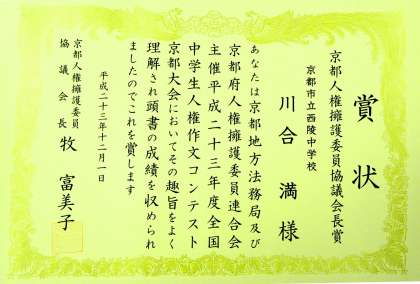 賞状
京都人権擁護委員協議会長賞
京都市立西陵中学校
川合 満 様
あなたは京都地方法務局及び
京都府人権擁護委員連合会
主催平成二十三年度全国
中学生人権作文コンテスト
京都大会においてその趣旨をよく
理解され頭書の成績を収められ
ましたのでこれを賞します
平成二十三年十二月一日
京都人権擁護委員
協議会長 牧 富美子